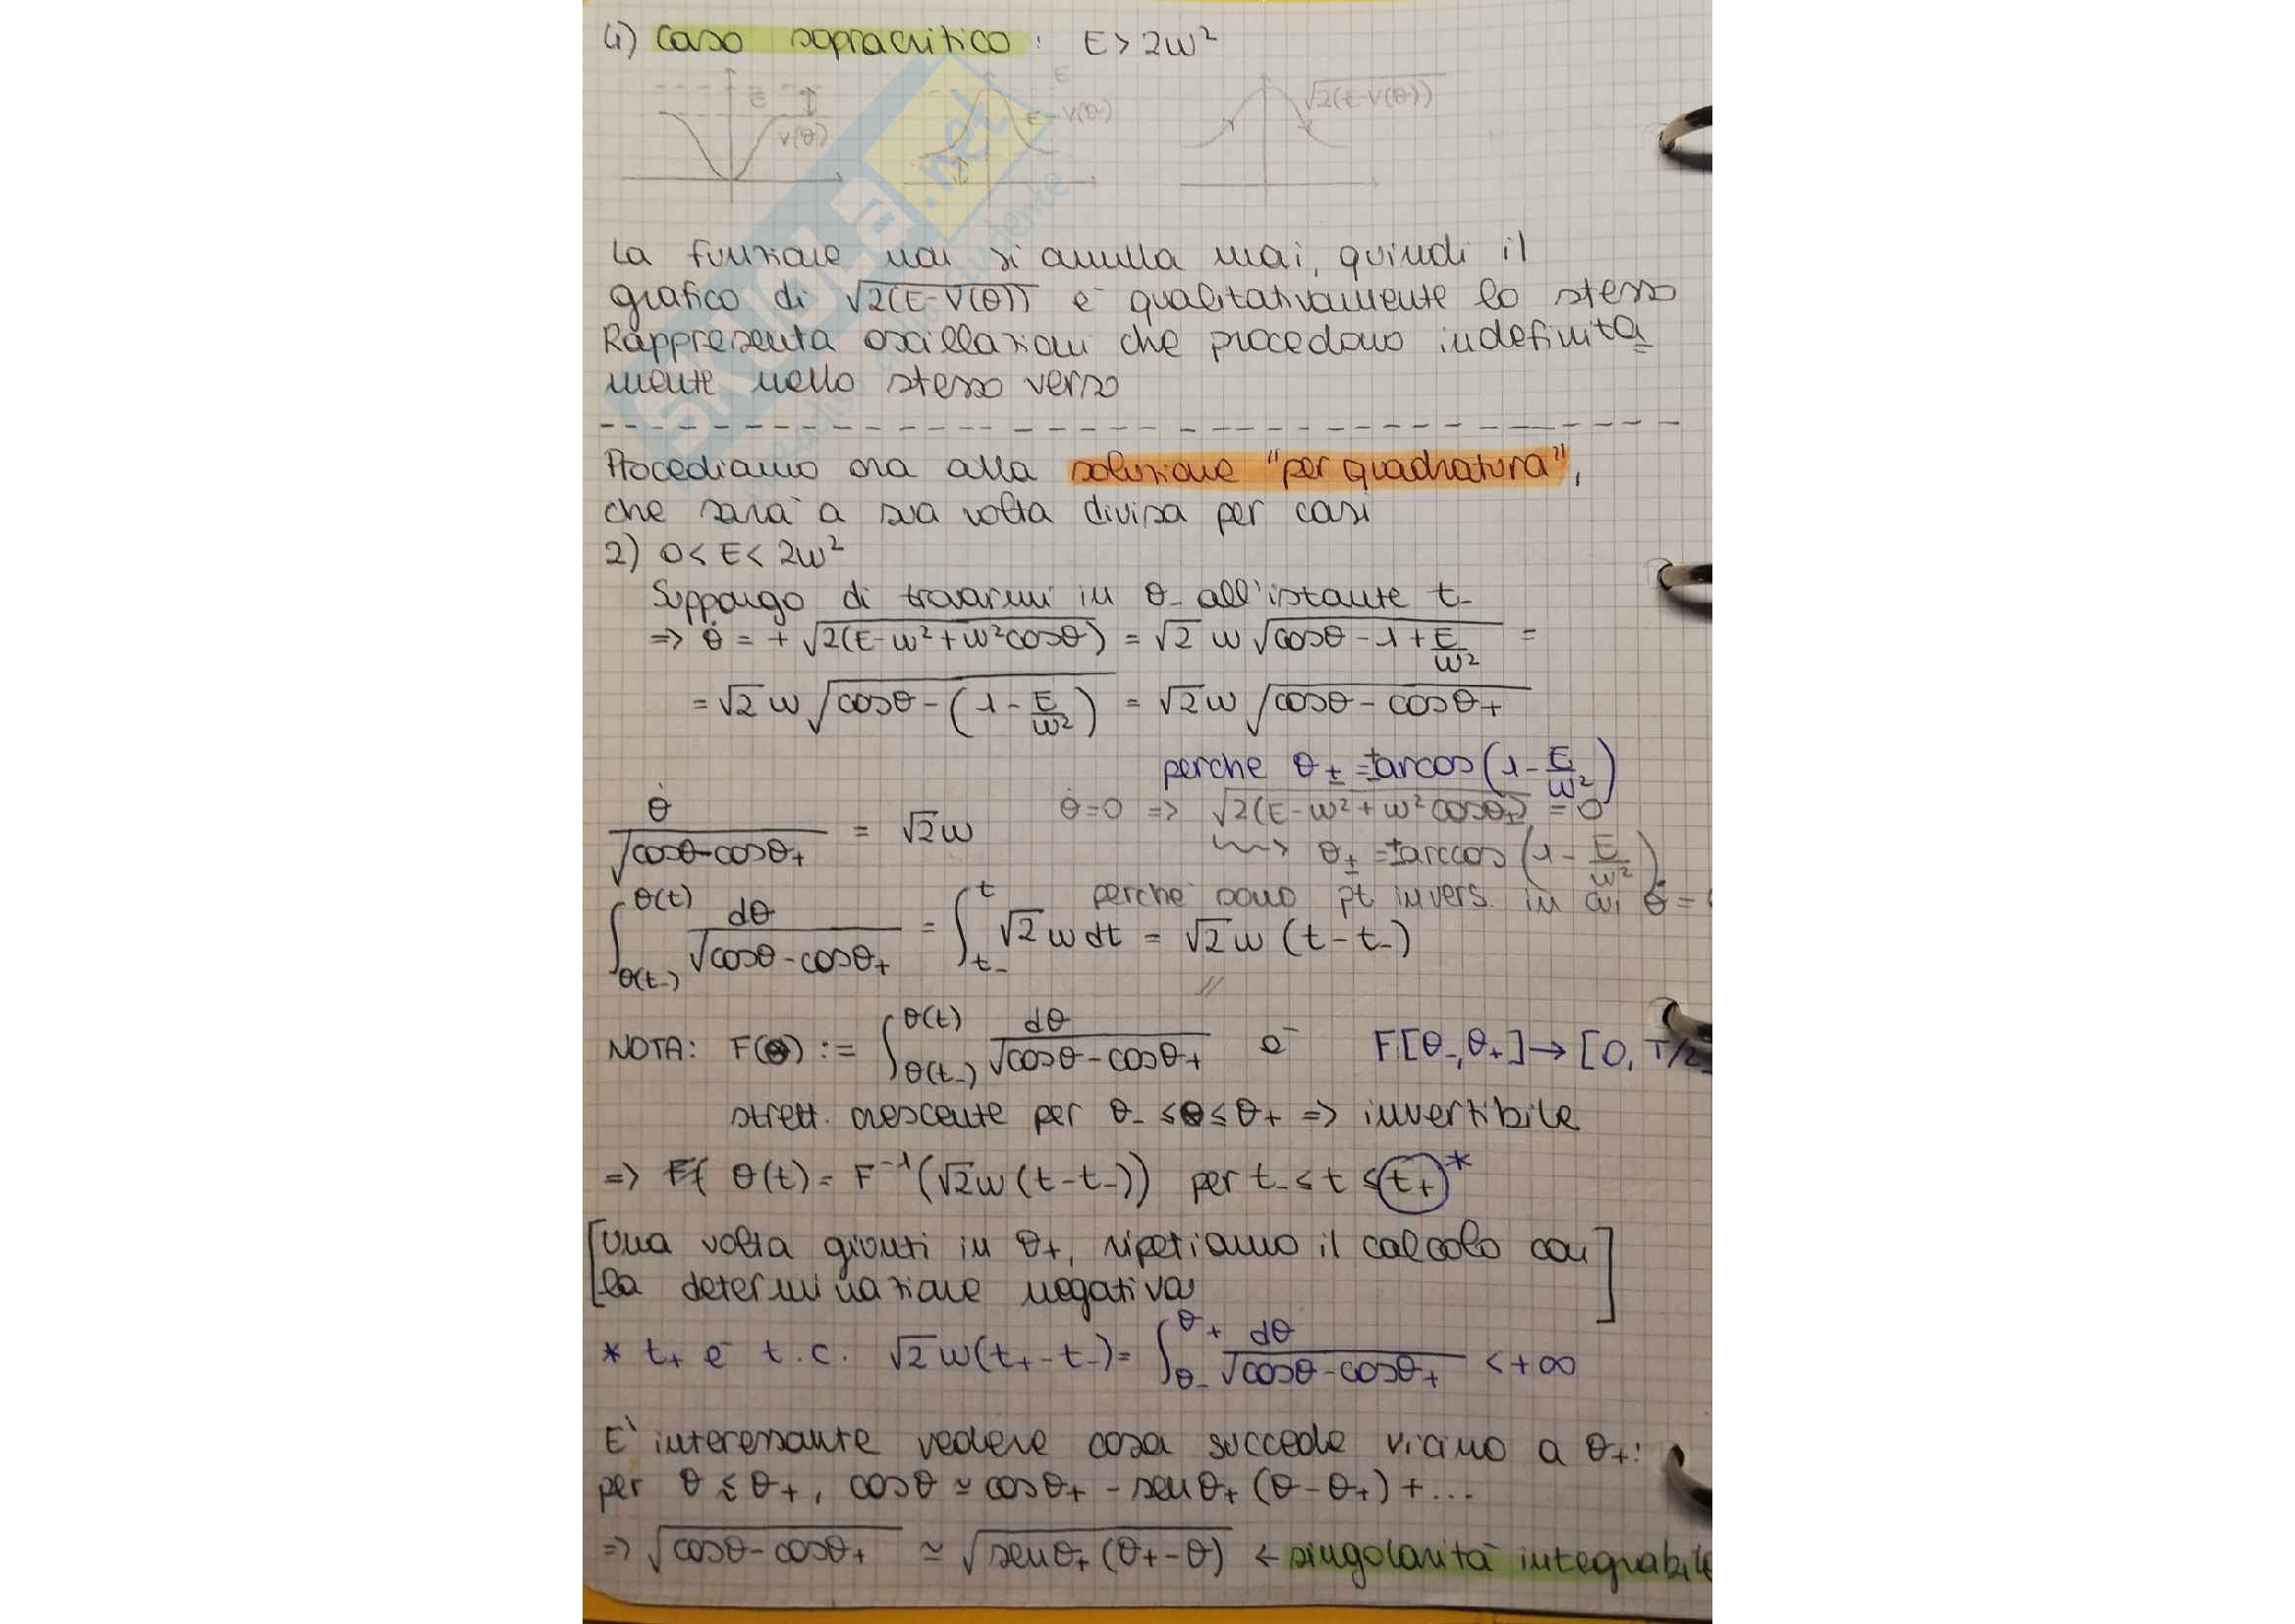 4) Caso sopracritico : E > 2ω²
E V(θ)
E E-V(θ)
√2(E-V(θ))
La funzione non si annulla mai, quindi il
grafico di √2(E-V(θ)) è qualitativamente lo stesso
Rappresenta oscillazioni che procedono indefinita
mente nello stesso verso
Procediamo ora alla soluzione "per quadratura",
che sarà a sua volta divisa per casi
2) 0 < E < 2ω²
Suppongo di trovarmi in θ₋ all'istante t₋
=> θ̇ = + √2(E-ω²+ω²cosθ) = √2 ω √cosθ - 1 + E/ω² =
= √2 ω √cosθ - (1 - E/ω²) = √2 ω √cosθ - cosθ₊
perche θ± = ±arcos(1 - E/ω²)
θ̇ / √cosθ-cosθ₊ = √2 ω
θ̇=0 => √2(E-ω²+ω²cosθ±) = 0
⇝ θ± = ±arccos(1 - E/ω²)
perchè sono pt invers. in cui θ̇ =
∫_θ(t₋)^θ(t) dθ / √cosθ-cosθ₊ = ∫_t₋^t √2 ω dt = √2 ω (t-t₋)
NOTA: F(θ) := ∫_θ(t₋)^θ(t) dθ / √cosθ-cosθ₊ è F[θ₋,θ₊] → [0, T/2
strett. crescente per θ₋ ≤ θ ≤ θ₊ => invertibile
=> θ(t) = F⁻¹(√2 ω (t-t₋)) per t₋ ≤ t ≤ t₊ *
[Una volta giunti in θ₊, ripetiamo il calcolo con
la determinazione negativa]
* t₊ è t.c. √2 ω(t₊-t₋) = ∫_θ₋^θ₊ dθ / √cosθ-cosθ₊ < +∞
E' interessante vedere cosa succede vicino a θ₊:
per θ ≲ θ₊, cosθ ≃ cosθ₊ - senθ₊ (θ-θ₊) + ...
=> √cosθ-cosθ₊ ≃ √senθ₊ (θ₊-θ) ← singolarità integrabile